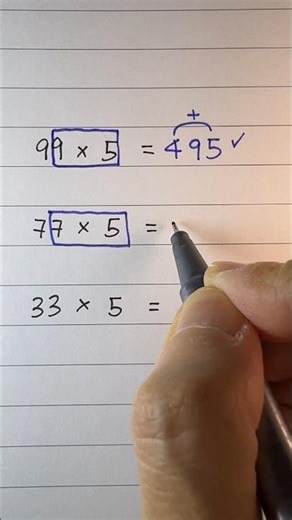 +
99 × 5 = 495 ✓
77 × 5 =
33 × 5 =